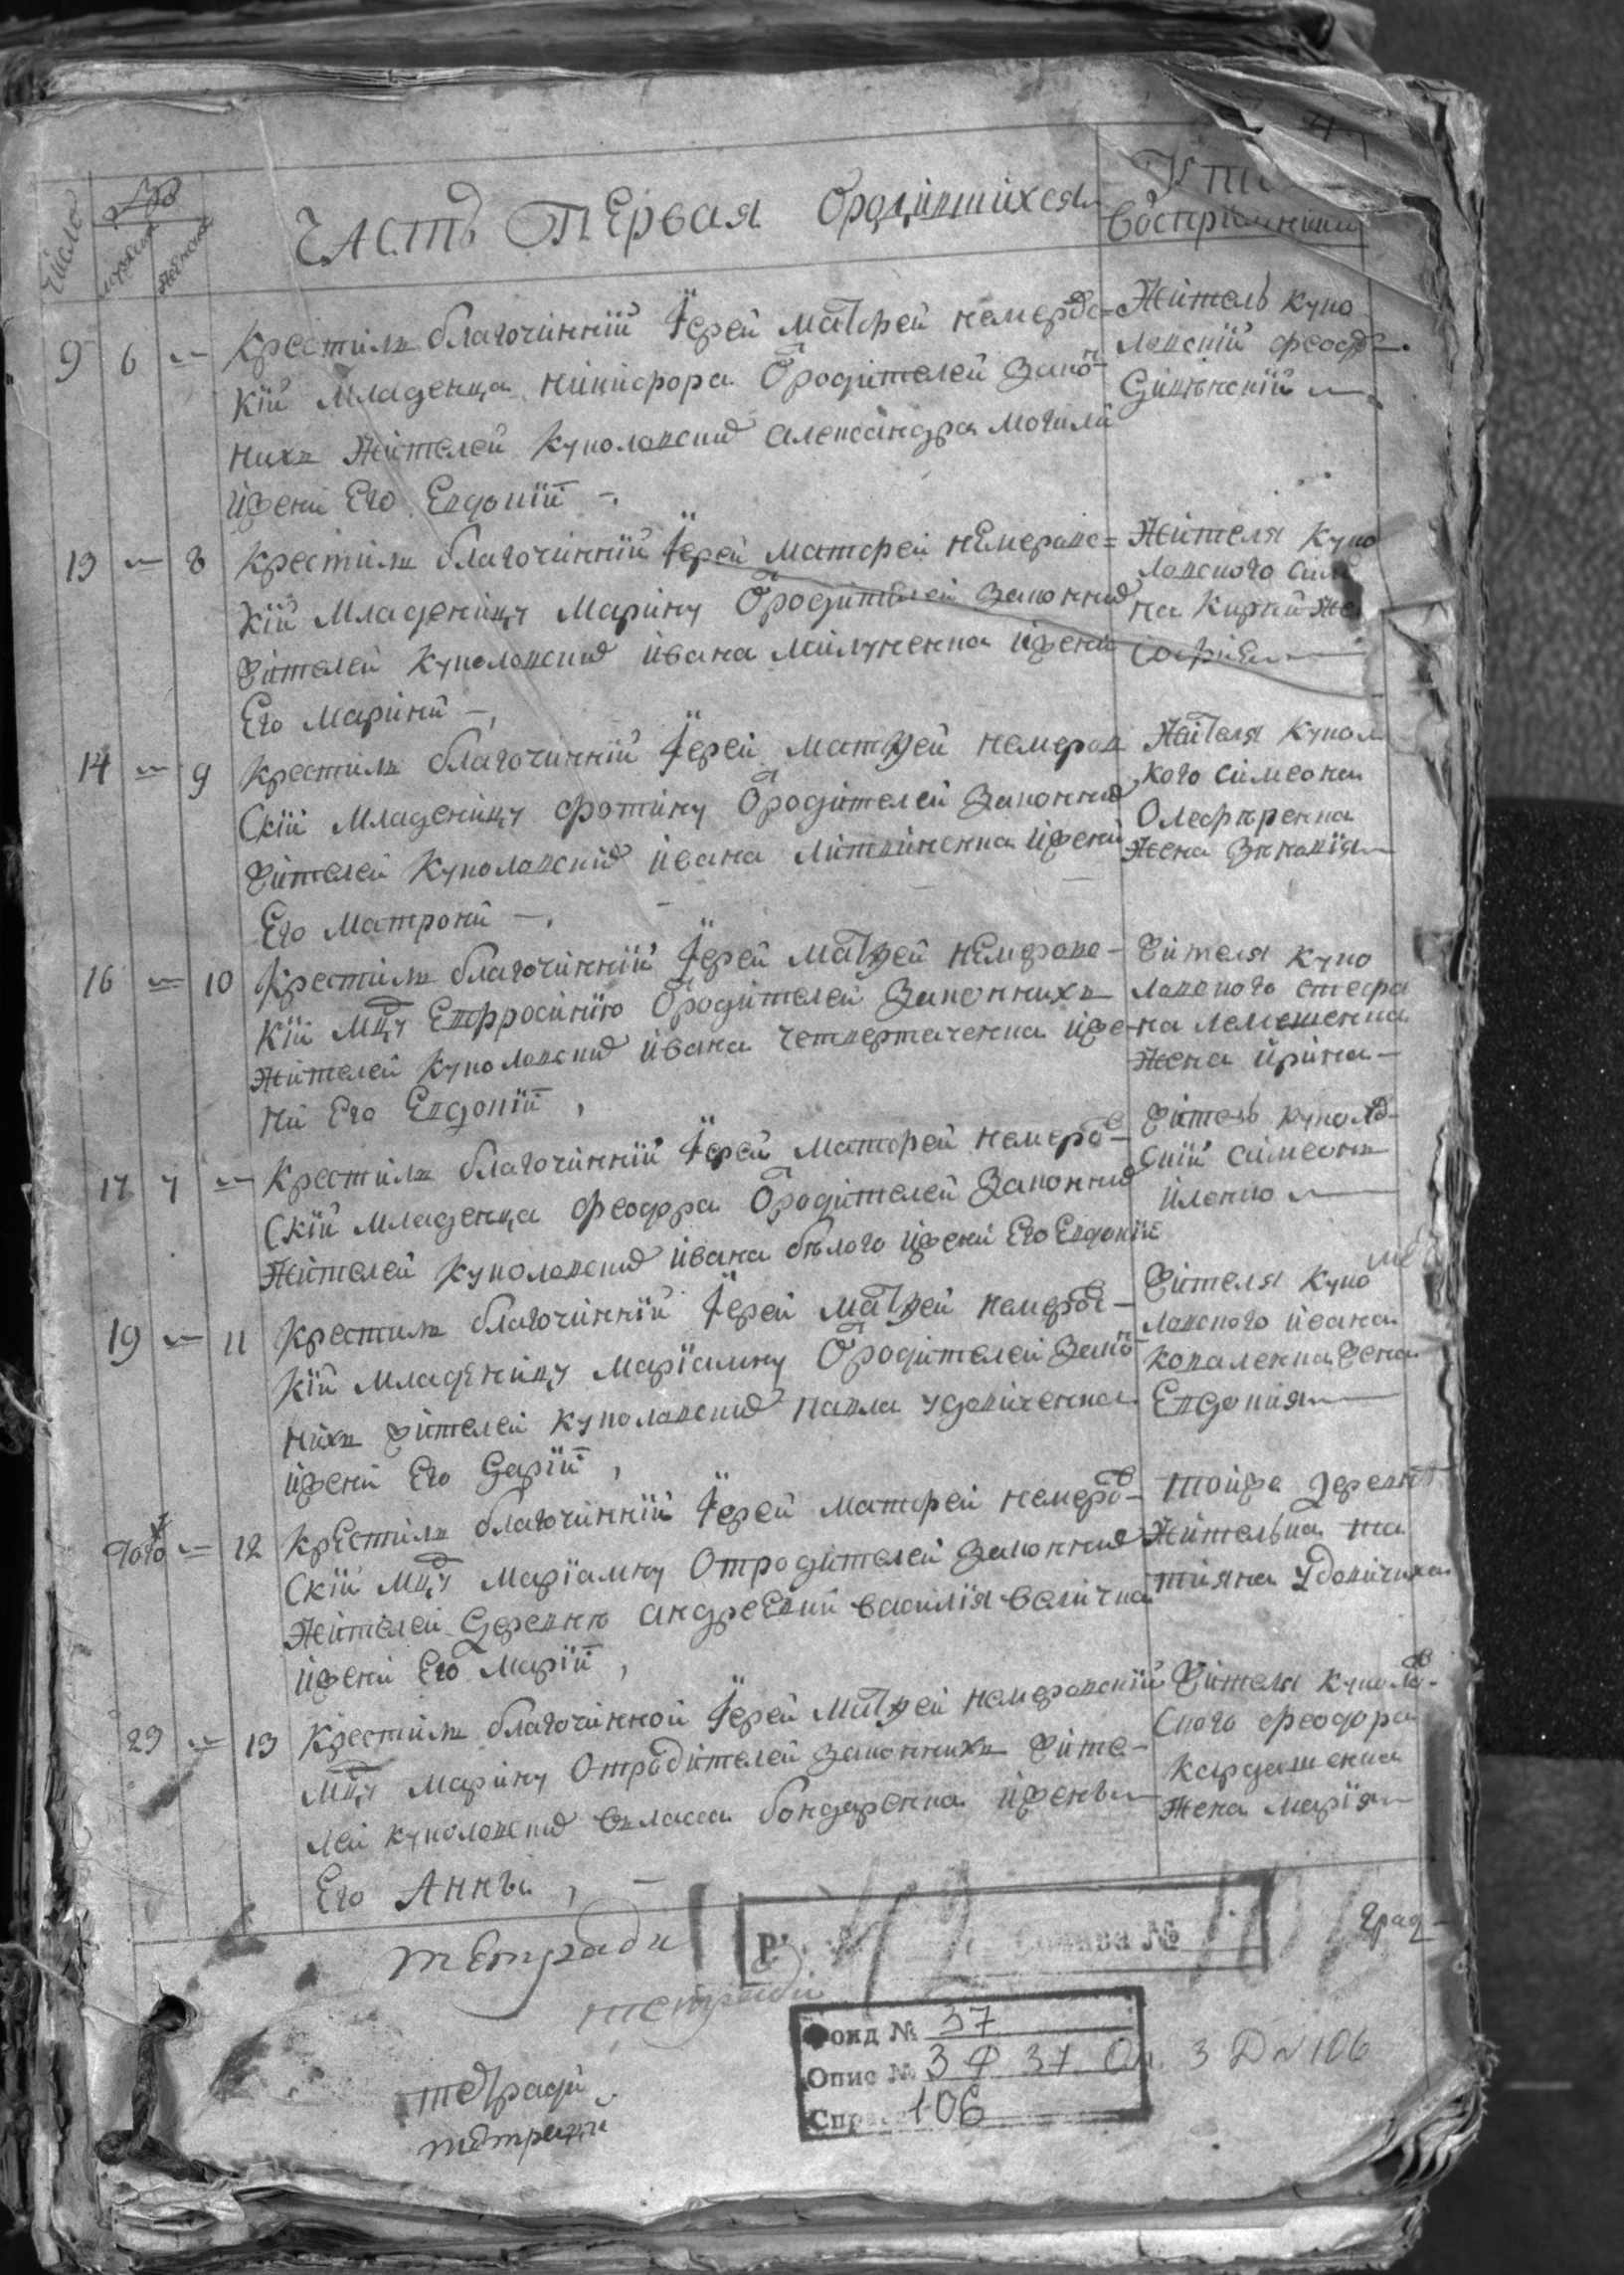 Число мужеска женска
Часть Первая Ородившихся
Восприемники
9 6 Крестилъ благочинній Іерей Матфей Немеровс=
кій Младенца Никифора Ѿродителей Закон
нихъ Жителей Куполовских Александра Могили
ижени Его Евдокіи
Житель Купо
ловскій Феодо
13 8 Крестилъ благочинній Іерей Матфей Немеровс=
кій Младеницу Марину Ѿродителей Законних
жителей Куполовских Ивана ижени
Его Марини
Жителя Купо
ловского
Софія
14 9 Крестилъ благочинній Іерей Матфей Немеров
Скій Младеницу Фотину Ѿродителей Законних
жителей Куполовских Ивана Литвиненка ижени
Его Матрони
Жителя Купол
кого Симеона
Олефѣренка
Жена
16 10 Крестилъ благочинній Іерей Матфей Немеровс-
кій Мцу Евфросинію Ѿродителей Законнихъ
Жителей Куполовских Ивана Четвертаченка иже
ни Его Евдокіи
жителя Купо
ловского Стефа
на Лемешенка
Жена Ирина
17 7 Крестилъ благочинній Іерей Матфей Немеров-
Скій Младенца Феодора Ѿродителей Законних
Жителей Куполовских Ивана бѣлого ижени Его Евдокіи
житель Куполов-
скій Симеонъ
Иленко
19 11 Крестилъ благочинній Іерей Матфей Немеровс-
кій Младеницу Маріамну Ѿродителей Закон
нихъ жителей Куполовских Павла Удовиченка
ижени Его Дарїи
жителя Купо
ловского Ивана
Коваленка жена
Евдокия
12 Крестилъ благочинній Іерей Матфей Немеров-
Скій Мцу Маріамну Отродителей Законних
Жителей Деревнѣ Андреевки Василія Величка
ижени Его Маріи
тойже Деревнѣ
Жителька Та
тияна Удовичиха
29 13 Крестилъ благочинной Іерей Матфей Немеровскій
Мцу Марину Отродителей Законнихъ жите-
лей Куполовских Власа Бондаренка иженъ
Его Аннъи
жителя Куполов-
Ского Феодора
Кардашенка
Жена Марія
град
тетради
тетради
тетради
тетради
Фонд № 37
Опис № 3 Ф 37 Оп. 3 Д №106
Спр. 106